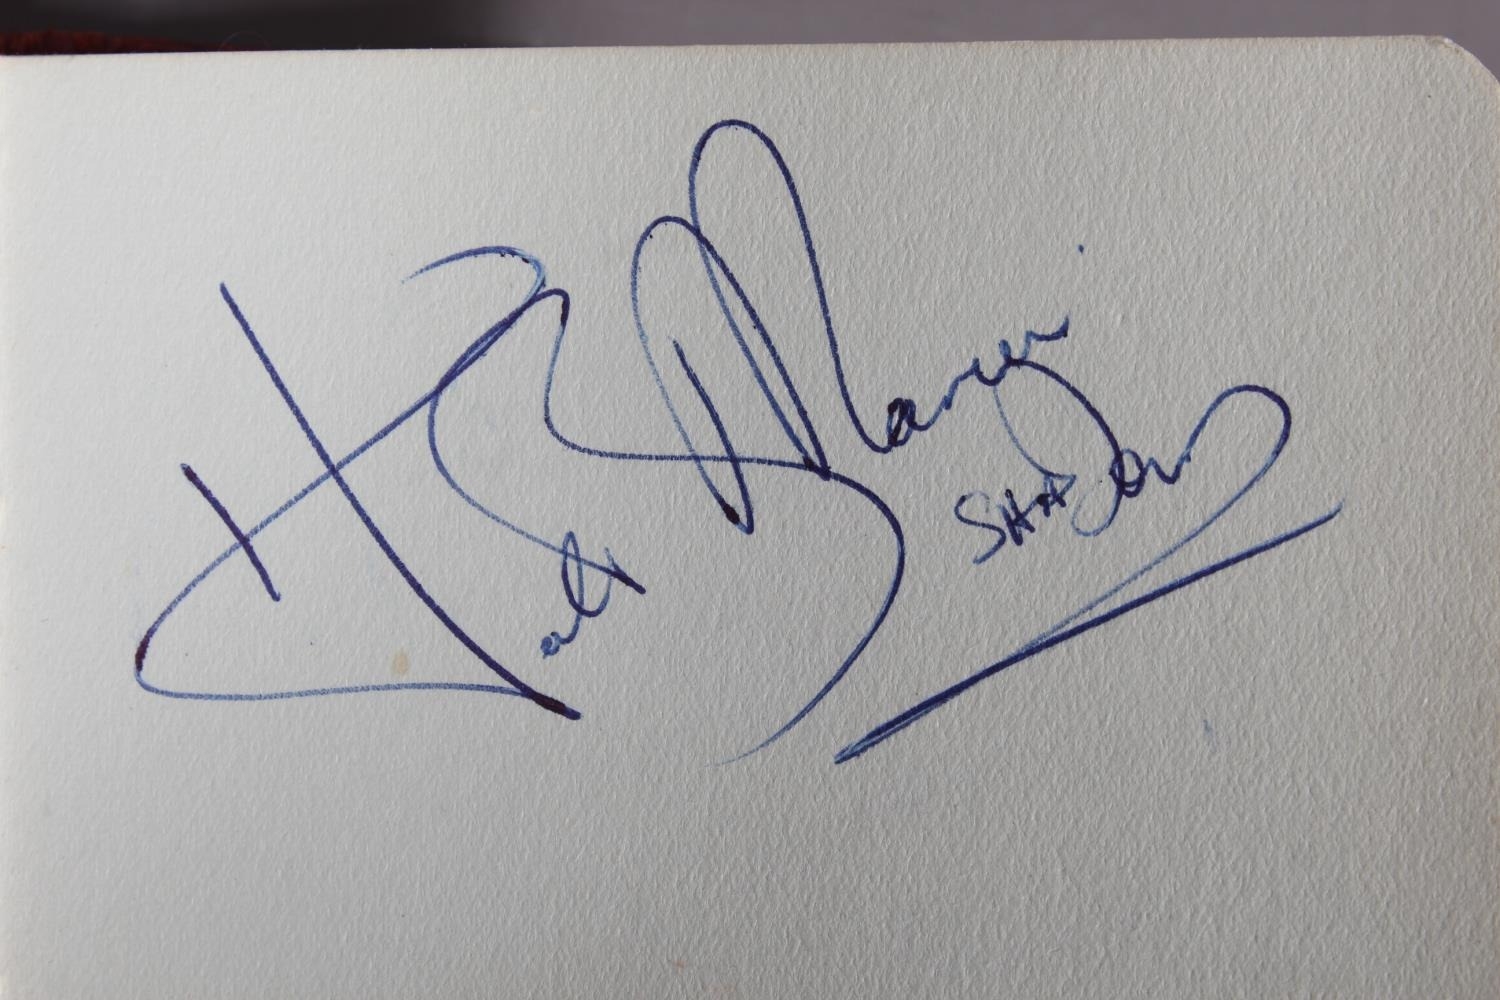 Hank B Marvin
SHADOWS